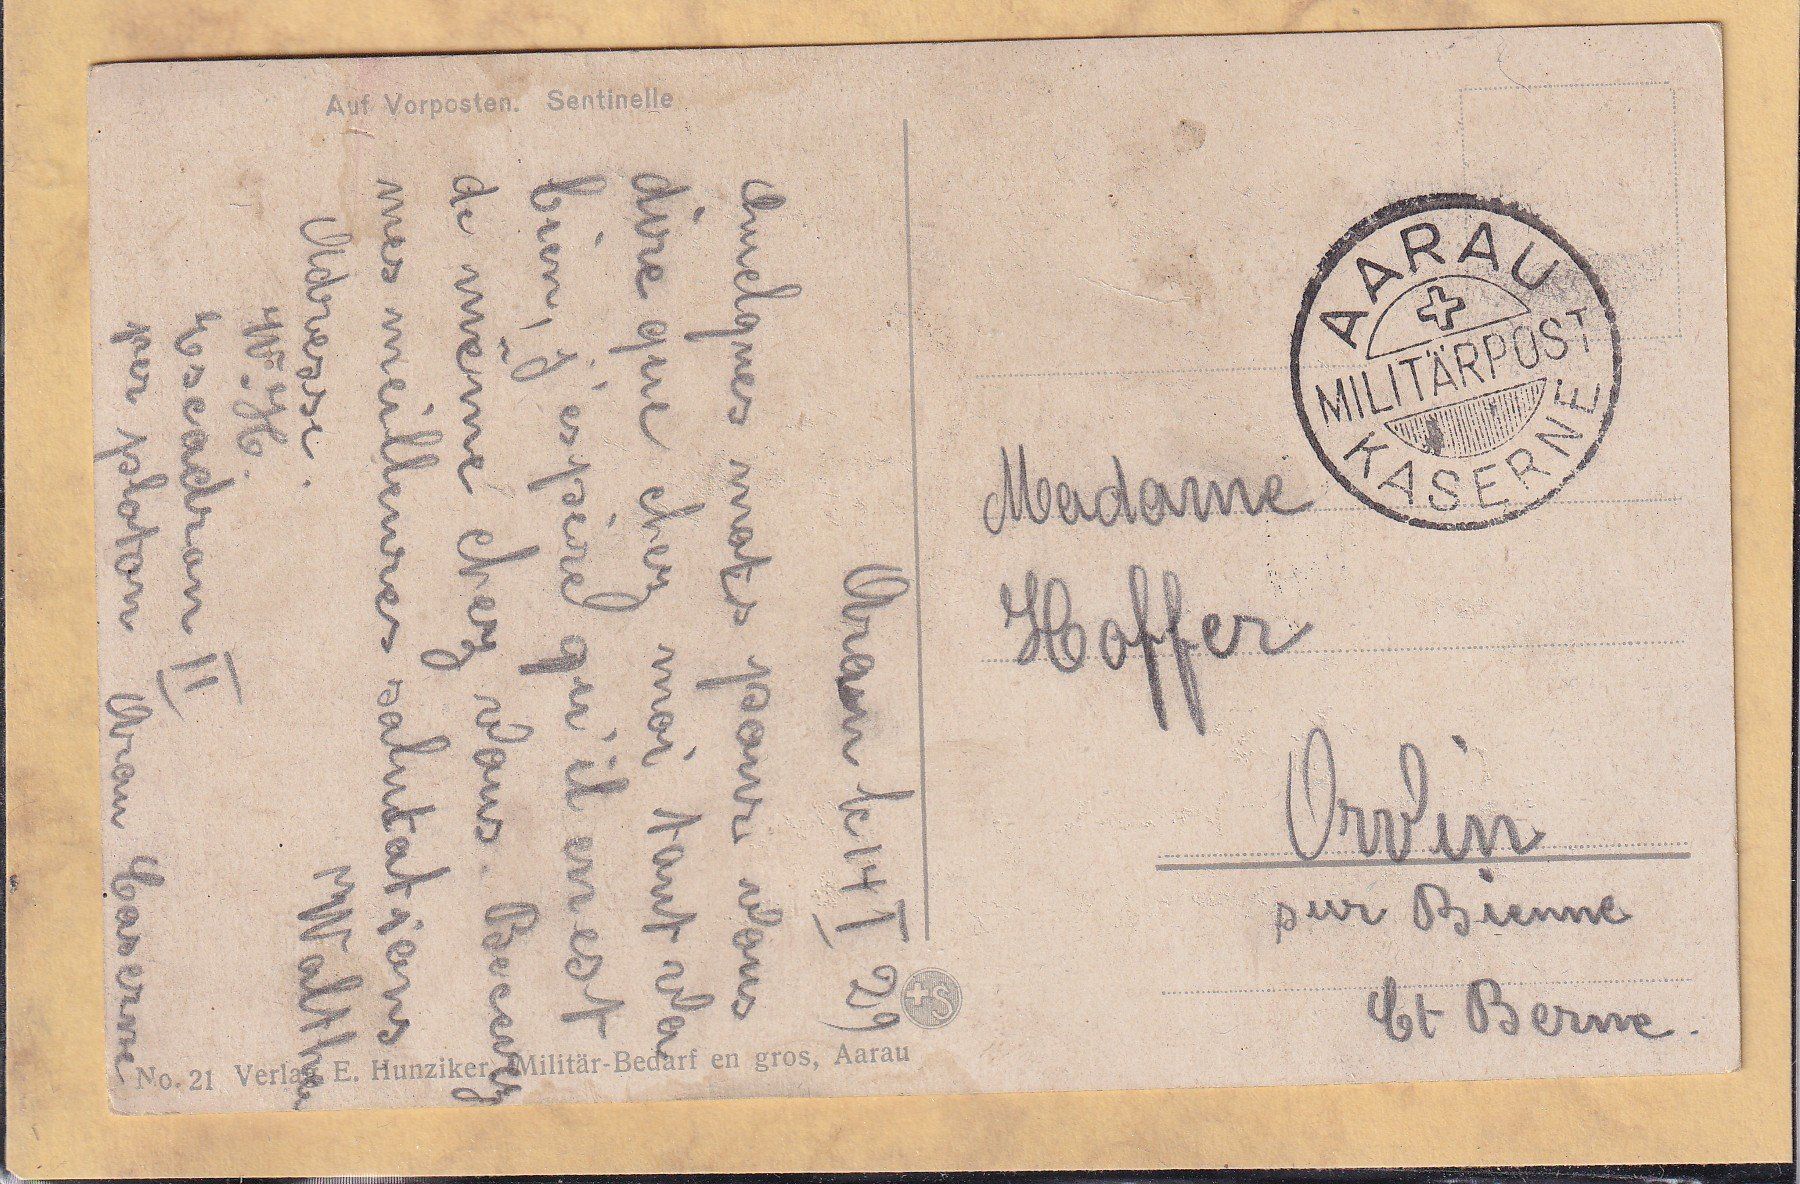 Auf Vorposten. Sentinelle
Aarau le 14 I 29
Quelques mots pour vous
dire que chez moi tout va
bien, j'espèrel qu'il en est
de même chez vous. Recevez
mes meilleures salutations
Walther
Adresse.
W. H.
Escadron II
per ploton Aarau Caserne
No. 21 Verlag E. Hunziker, Militär-Bedarf en gros, Aarau
+S
AARAU
MILITÄRPOST
KASERNE
Madame
Hoffer
Orvin
sur Bienne
Ct Berne.